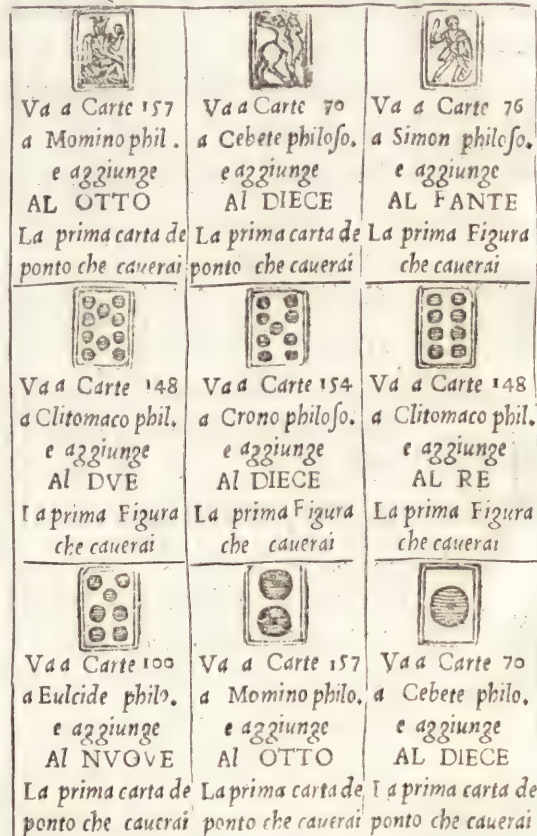 Va a Carte 157
a Momino phil.
e aggiunge
AL OTTO
La prima carta de
ponto che cauerai
Va a Carte 70
a Cebete philoso.
e aggiunge
Al DIECE
La prima carta de
ponto che cauerai
Va a Carte 76
a Simon philoso.
e aggiunge
AL FANTE
La prima Figura
che cauerai
Va a Carte 148
a Clitomaco phil.
e aggiunge
Al DVE
La prima Figura
che cauerai
Va a Carte 154
a Crono philoso.
e aggiunge
Al DIECE
La prima Figura
che cauerai
Va a Carte 148
a Clitomaco phil.
e aggiunge
AL RE
La prima Figura
che cauerai
Va a Carte 100
a Eulcide philo.
e aggiunge
Al NVOVE
La prima carta de
ponto che cauerai
Va a Carte 157
a Momino philo.
e aggiunge
Al OTTO
La prima carta de
ponto che cauerai
Va a Carte 70
a Cebete philo.
e aggiunge
AL DIECE
La prima carta de
ponto che cauerai